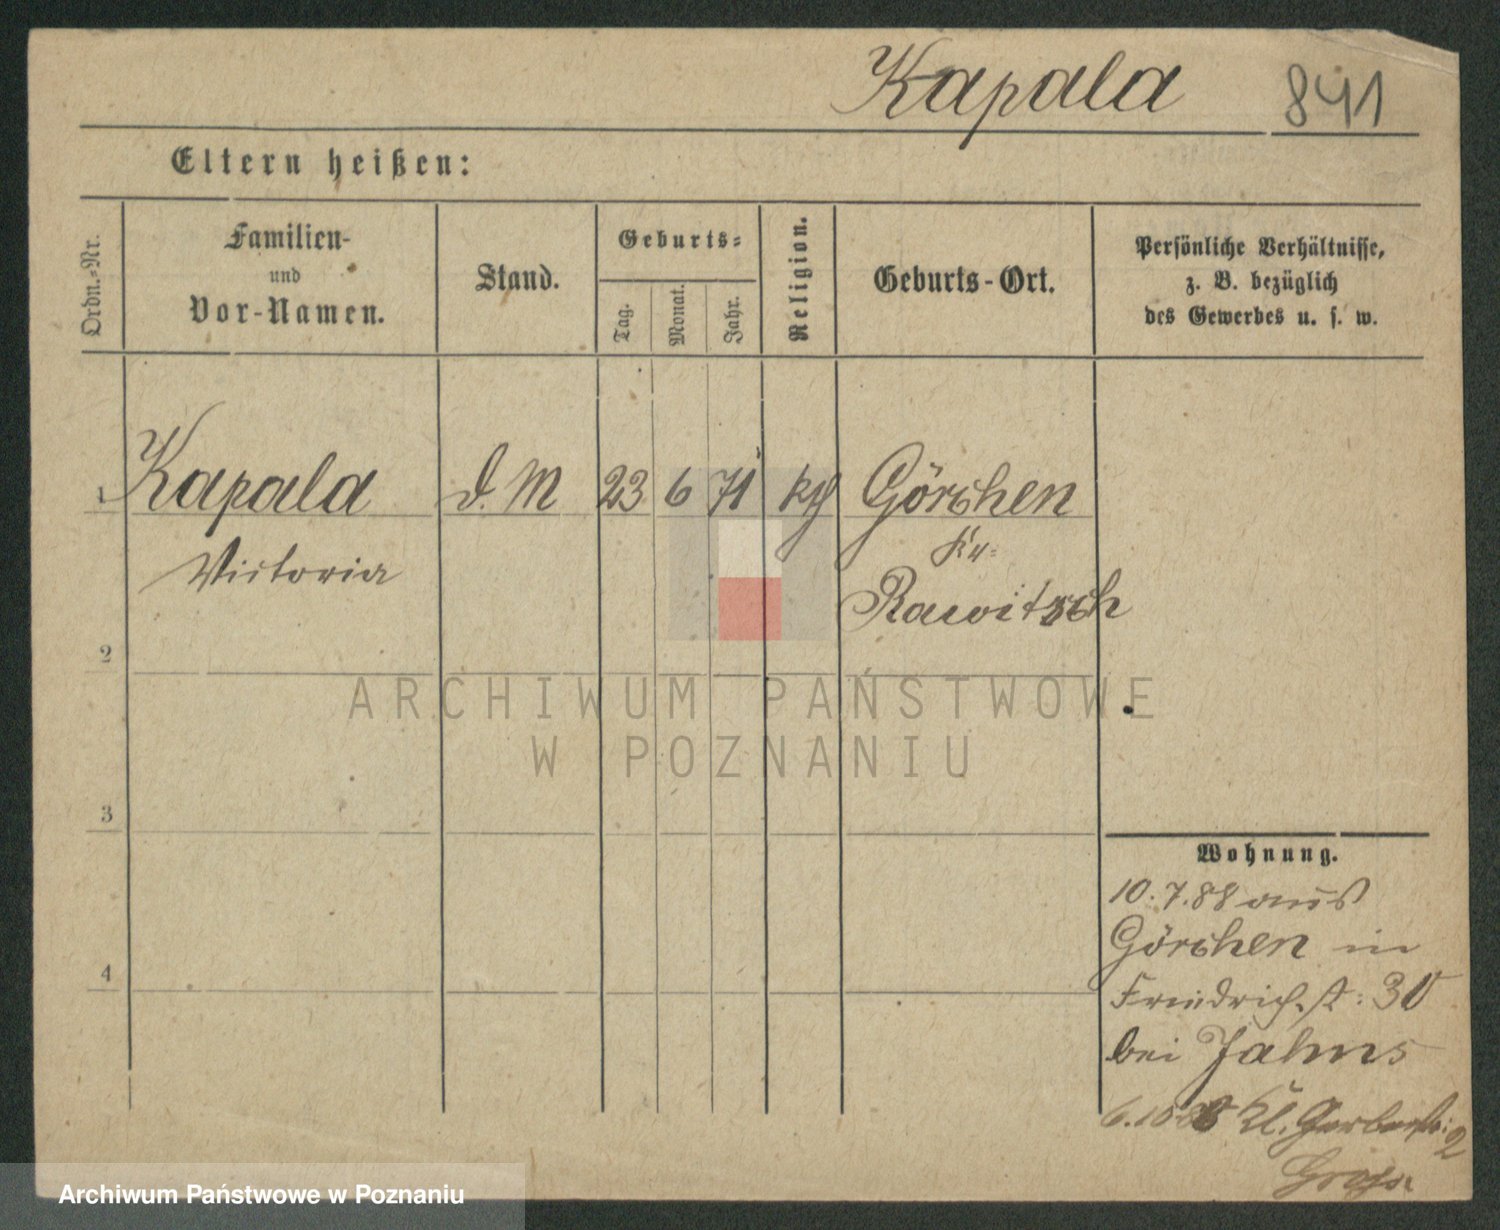 Kapala 841
Eltern heißen:
Ordn.-Nr.
Familien-
und
Vor-Namen.
Stand.
Geburts-
Tag.
Monat.
Jahr.
Religion.
Geburts-Ort.
Persönliche Verhältnisse,
z. B. bezüglich
des Gewerbes u. s. w.
1 Kapala d. M 23 6 71 kth Görchen
Victoria Kr.
Rawitsch
2
3
4
Wohnung.
10.7.88 aus
Görchen in
Friedrichst: 30
bei Jahns
Kl. Gerberstr: 2
ARCHIWUM PAŃSTWOWE
W POZNANIU
Archiwum Państwowe w Poznaniu